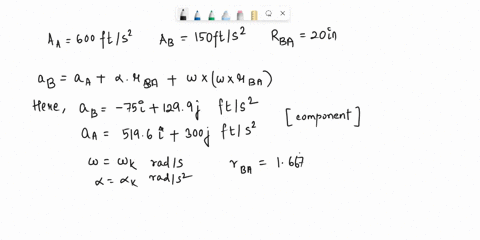 A_A = 600 ft/s² A_B = 150 ft/s² R_BA = 20 in
a_B = a_A + α. r_BA + ω × (ω × r_BA)
Here, a_B = -75i + 129.9j ft/s²
a_A = 519.6 i + 300j ft/s² [component]
ω = ω_k rad/s r_BA = 1.667
α = α_k rad/s²